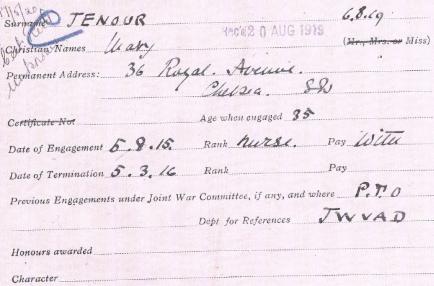 Surname JENOUR 6.8.19
Rec'd 20 AUG 1919
Christian Names Mary (Mr, Mrs. or Miss)
Permanent Address: 36 Royal Avenue.
Chelsea. SW
Certificate No: Age when engaged 35
Date of Engagement 5.8.15. Rank Nurse. Pay
Date of Termination 5.3.16 Rank Pay
Previous Engagements under Joint War Committee, if any, and where P.T.O
Dept for References JWVAD
Honours awarded
Character